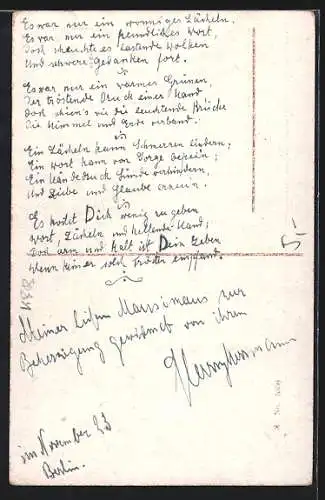 Es war nur ein sonniges Lächeln,
Es war nur ein freundliches Wort,
Doch scheuchte es lastende Wolken
Und schwere Gedanken fort.
Es war nur ein warmes Grüssen,
Der tröstende Druck einer Hand
Doch schien's wie die leuchtende Brücke
Die Himmel und Erde verband.
Ein Lächeln kann Schmerzen lindern;
Ein Wort kann von Sorge befrein;
Ein Händedruck Sünde verhindern,
Und Liebe und Glaube erneun.
Es kostet Dich wenig zu geben
Wort, Lächeln und helfende Hand;
Doch arm und kalt ist Dein Leben
Wenn keiner solch Trösten empfand.
5,-
Meiner lieben Mausimaus zur
Beherzigung gewidmet von ihrem
im November 23
Berlin.